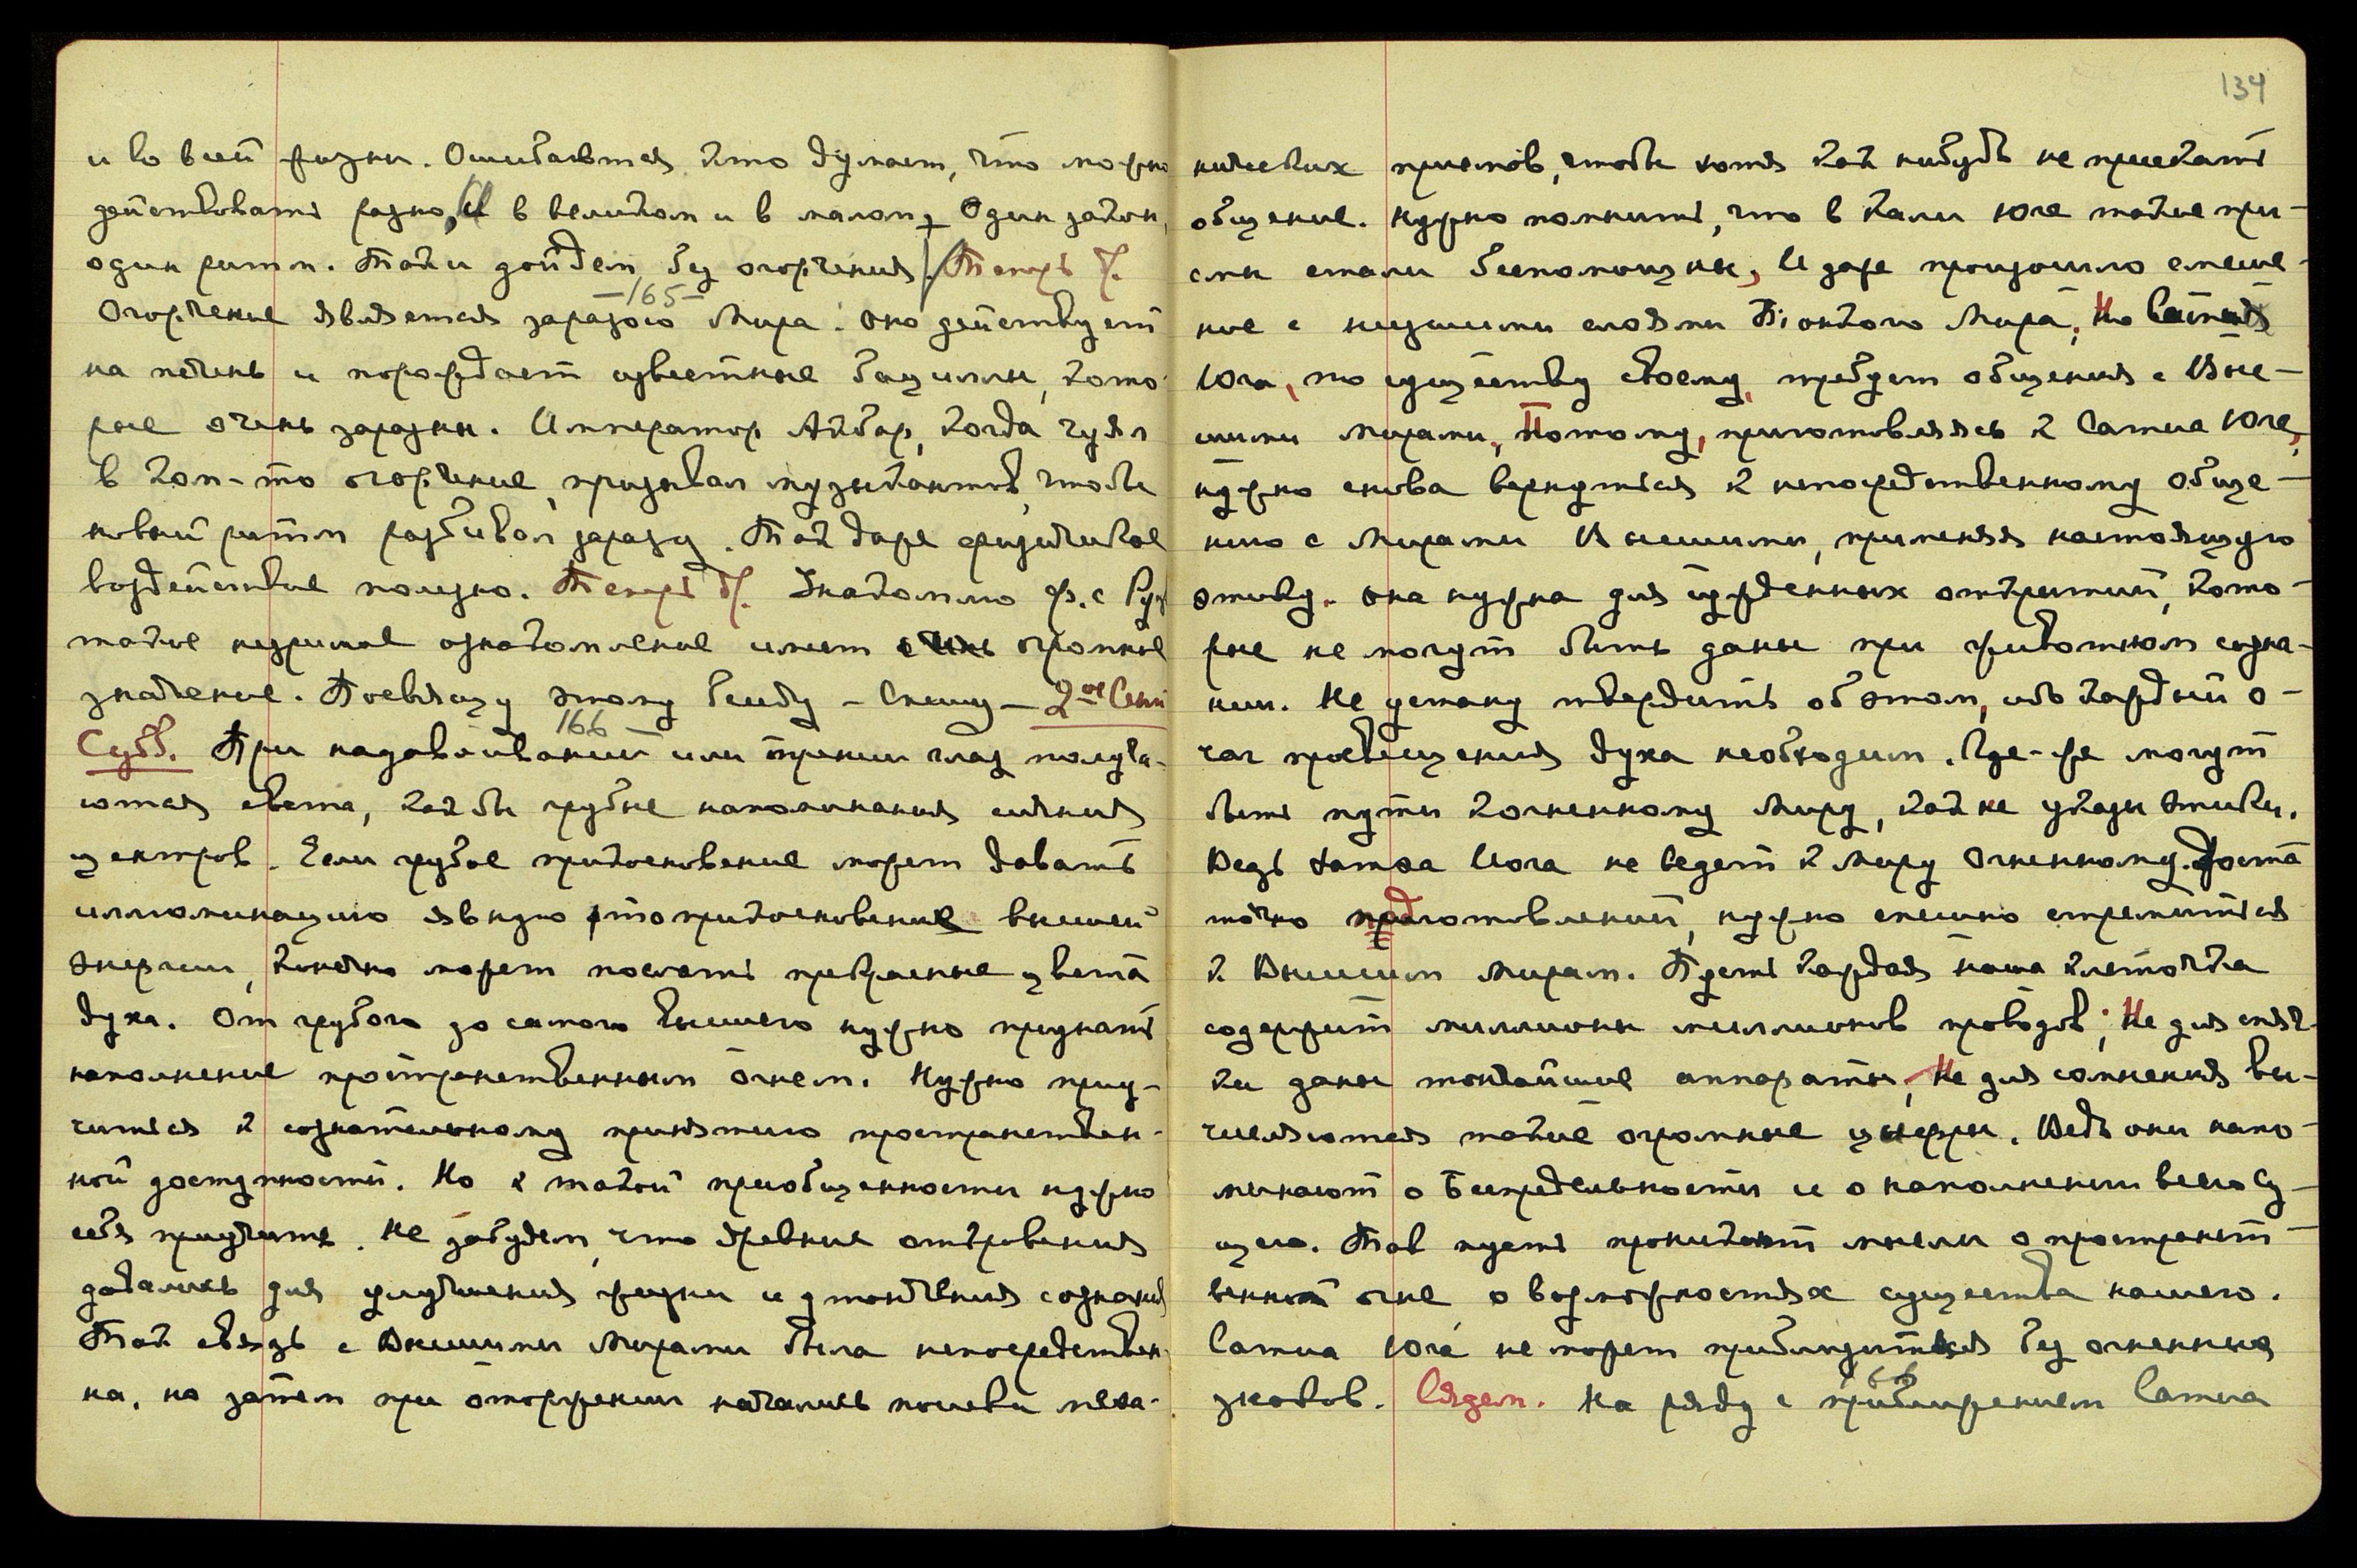 и во всей жизни. Ошибается кто думает, что можно
действовать разно, И в великом и в малом, Один закон,
один ритм. Так и дойдем без огорчения. Теперь
– 165 –
Огорчение является заразою Мира. Оно действует
на печень и порождает известные бациллы, кото-
рые очень заразны. Император Акбар, когда чуял
в ком-то огорчение, призывал музыкантов, чтобы
новый ритм разбивал заразу. Так даже физическое
воздействие полезно. Теперь Знакомлю Ф. с Руз
такие незримое ознакомление имеет очень огромное
значение. Посвящу этому беседу – Спешу – 2ое Сент
166 –
Субб. При надавливании или трении глаз получа-
ются света, как бы грубые напоминания сияния
центров. Если грубое прикосновение может давать
иллюминацию явную, то прикосновение высшей
энергии, конечно может послать прекрасные цвета
духа. От грубого до самого высшего нужно признать
наполнение пространственным огнем. Нужно приу-
читься к сознательному принятию пространствен-
ной доступности. Но к такой приобщенности нужно
себя приучить. Не забудем, что древние откровения
давались для улучшения жизни и утончения сознания
Так связь с Высшими Мирами была непосредствен-
на, но затем при отторжении начались поиски меха-
134
нических приемов, чтобы хотя как нибудь не пресекать
общение. Нужно помнить, что в Кали Юге такие при-
емы стали беспомощны, И даже произошло смеше-
ние с низшими слоями Тонкого Мира, Но Сатия
Юга, по существу своему, требует общения с Выс-
шими Мирами, Потому, приготовляясь к Сатиа Юге,
нужно снова вернуться к непосредственному обще-
нию с Мирами Высшими, применяя настоящую
этику. Она нужна для суждённых открытий, кото-
рые не могут быть даны при животном созна-
нии. Не устану твердить об этом, ибо каждый о-
чаг просвещения духа необходим. Где-же могут
быть пути к огненному Миру, как не указы Этики.
Ведь Хатха Йога не ведет к Миру Огненному. Доста
точно предготовлений, нужно спешно стремиться
к Высшим Мирам. Пусть каждая наша клеточка
содержит миллионы миллионов проводов; Не для спяч-
ки даны тончайшие аппараты, Не для сомнения вы-
числяются такие огромные цифры. Ведь они напо-
минают о Беспредельности и о наполнении всего Су-
щего. Так пусть проникают мысли о пространст-
венном огне, о возможностях существа нашего.
Сатиа Юга не может приблизиться без огненных
знаков. Сядем. На ряду с приближением Сатиа